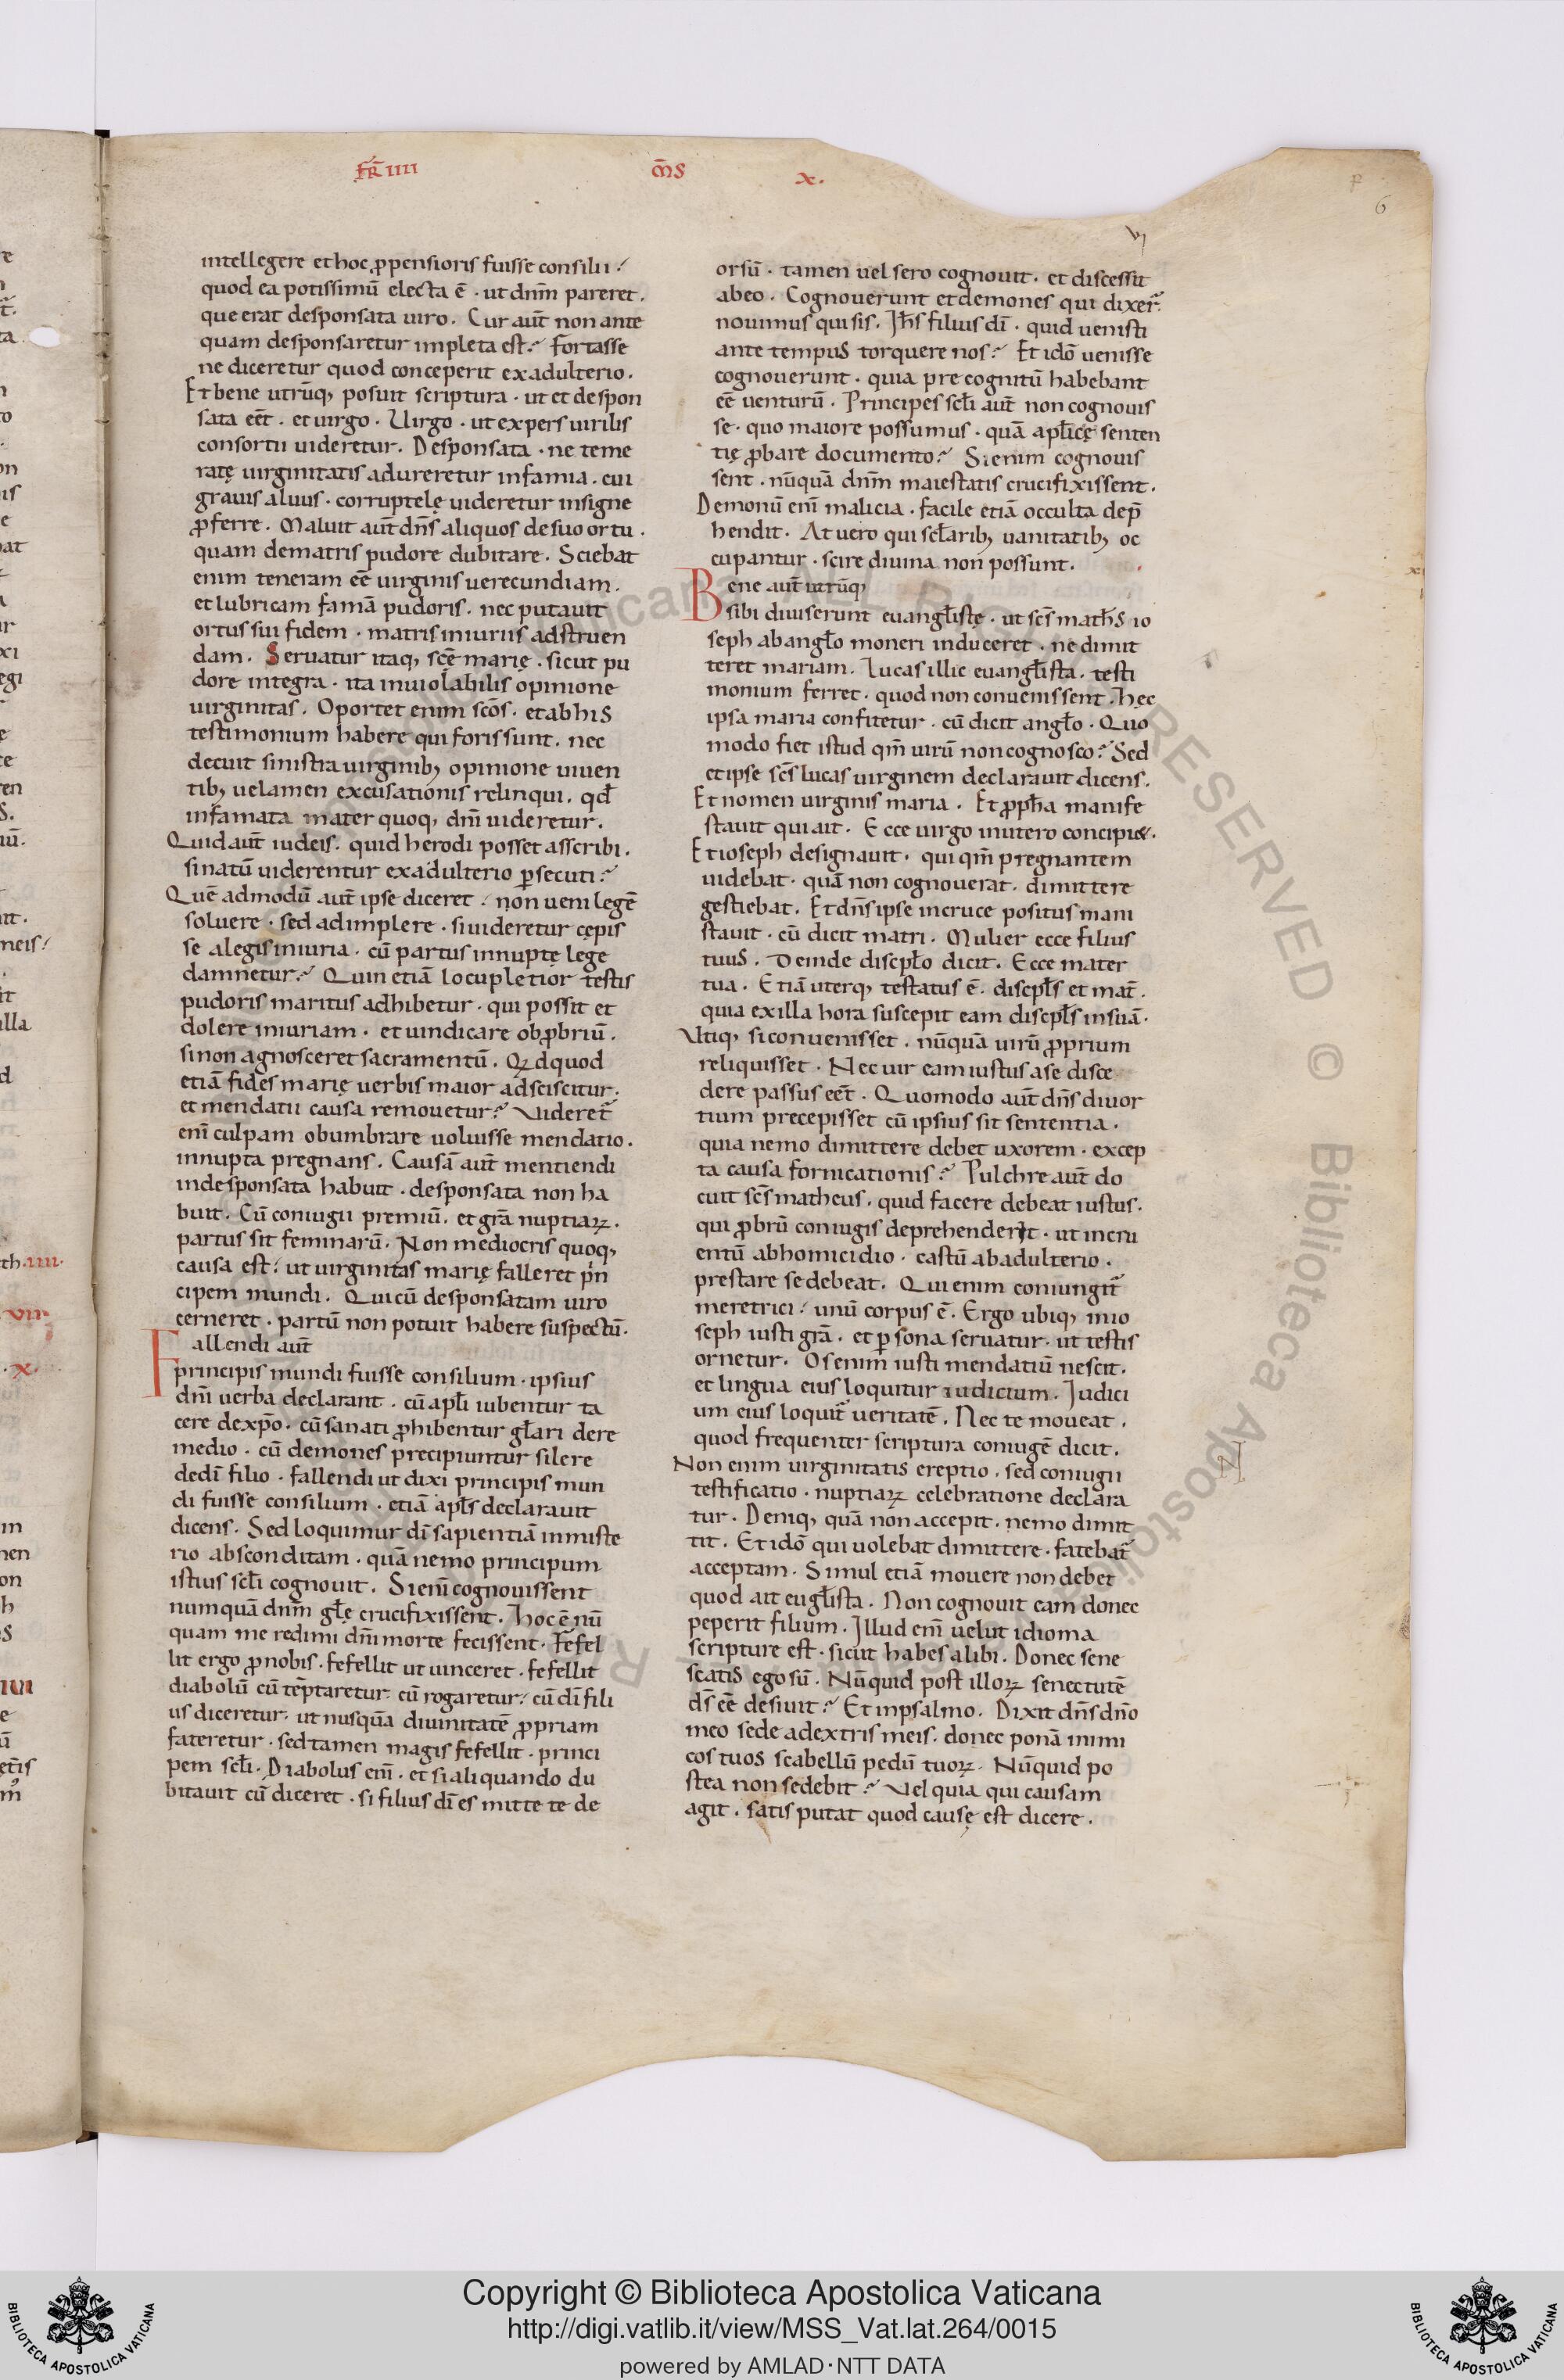 F̅R̅ IIII
O̅M̅S
X.
6
VI
intellegere et hoc ꝓpensioris fuisse consilii?
quod ea potissimū electa ē · ut dn̄m pareret.
que erat desponsata uiro. Cur aut̄ non ante
quam desponsaretur impleta est? Fortasse
ne diceretur quod conceperit ex adulterio.
Et bene utrūq, posuit scriptura · ut et despon
sata eēt. et uirgo. Uirgo · ut expers uirilis
consortii uideretur. Desponsata · ne teme
ratę uirginitatis adureretur infamia. cui
grauis aluus · corruptelę uideretur insigne
ꝓferre. Maluit aut̄ dn̄s aliquos de suo ortu.
quam de matris pudore dubitare. Sciebat
enim teneram eē uirginis uerecundiam.
et lubricam famā pudoris. nec putauit
ortus sui fidem · matris iniuriis adstruen
dam. Seruatur itaq, scē marię · sicut pu
dore integra · ita inuiolabilis opinione
uirginitas. Oportet enim scōs. et ab his
testimonium habere qui foris sunt. nec
decuit sinistra uirginib, opinione uiuen
tib, uelamen excusationis relinqui. qđ
infamata mater quoq, dn̄i uideretur.
Quid aut̄ iudeis. quid herodi posset asscribi.
si natū uiderentur ex adulterio ꝑsecuti?
Quē admodū aut̄ ipse diceret? non ueni legē
soluere · sed adimplere · si uideretur cępis
se a legis iniuria · cū partus innuptę lege
damnetur? Quin etiā locupletior testis
pudoris maritus adhibetur · qui possit et
dolere iniuriam · et uindicare obꝓbriū.
si non agnosceret sacramentū. Qꝫ dquod
etiā fides marię uerbis maior adsciscitur.
et mendatii causa remouetur? Uideret̄
eni̅ culpam obumbrare uoluisse mendatio.
innupta pregnans. Causā aut̄ mentiendi
indesponsata habuit · desponsata non ha
buit. Cū coniugii premiū. et grā nuptiaꝝ.
partus sit feminarū. Non mediocris quoq,
causa est? ut uirginitas marię falleret prin
cipem mundi. Qui cū desponsatam uiro
cerneret · partū non potuit habere suspectū.
Fallendi aut̄
principis mundi fuisse consilium · ipsius
dn̄i uerba declarant. cū apłi iubentur ta
cere de xp̄o. cū sanati ꝓhibentur gl̄ari de re
medio. cū demones precipiuntur silere
de dī filio. Fallendi ut dixi principis mun
di fuisse consilium · etiā apłs declarauit
dicens. Sed loquimur dī sapientiā in miste
rio absconditam · quā nemo principum
istius scłi cognouit. Si eni̅ cognouissent
numquā dn̄m gl̄ę crucifixissent. Hoc ē nū
quam me redimi dn̄i morte fecissent. Fefel
lit ergo ꝓ nobis. fefellit ut uinceret. fefellit
diabolū cū tēptaretur. cū rogaretur. cū dī fili
us diceretur. ut nusquā diuinitatē ꝓpriam
fateretur · sed tamen magis fefellit · princi
pem scłi. Diabolus eni̅ · et si aliquando du
bitauit cū diceret · si filius dī es mitte te de
orsū · tamen uel sero cognouit. et discessit
ab eo. Cognouerunt et demones qui dixer̄.
nouimus qui sis. Ihs̄ filius dī · quid uenisti
ante tempus torquere nos? Et idō uenisse
cognouerunt · quia precognitū habebant
eē uenturū. Principes scłi aut̄ non cognouis
se. quo maiore possumus · quā aplīcę senten
tię ꝓbare documento? Si enim cognouis
sent · nūquā dn̄m maiestatis crucifixissent.
Demonū eni̅ malicia · facile etiā occulta dep̄
hendit. At uero qui scłarib, uanitatib, oc
cupantur · scire diuina non possunt.
Bene aut̄ utrūq,
sibi diuiserunt euangłistę · ut scs̄ mathś io
seph ab angło moneri induceret · ne dimit
teret mariam. Lucas illic euangłista. testi
monium ferret · quod non conuenissent. hęc
ipsa maria confitetur. cū dicit angło. Quo
modo fiet istud qm̄ uirū non cognosco? Sed
et ipse scs̄ lucas uirginem declarauit dicens.
Et nomen uirginis maria. Et ꝓph̄a manife
stauit qui ait. Ecce uirgo in utero concipi&.
Et ioseph designauit. qui qm̄ pregnantem
uidebat · quā non cognouerat. dimittere
gestiebat. Et dn̄s ipse in cruce positus mani
stauit · cū dicit matri. Mulier ecce filius
tuus. Deinde discipło dicit. Ecce mater
tua. Etiā uterq, testatus ē. discipłs et mat̄.
quia ex illa hora suscepit eam discipłs in suā.
Utiq, si conuenisset. nūquā uirū ꝓprium
reliquisset. Nec uir eam iustus a se disce
dere passus eēt. Quomodo aut̄ dn̄s diuor
tium precepisset cū ipsius sit sententia.
quia nemo dimittere debet uxorem. excep
ta causa fornicationis? Pulchre aut̄ do
cuit scs̄ matheus. quid facere debeat iustus.
qui ꝓbrū coniugis deprehenderit. ut incru
entū ab homicidio · castū ab adulterio.
prestare se debeat. Qui enim coniungit̄
meretrici? unū corpus ē. Ergo ubiq, in io
seph iusti grā. et ꝑsona seruatur. ut testis
ornetur. Os enim iusti mendatiū nescit.
et lingua eius loquitur iudicium. Iudici
um eius loquit̄ ueritatē. Nec te moueat.
quod frequenter scriptura coniugē dicit.
Non enim uirginitatis ereptio. sed coniugii
testificatio · nuptiaꝝ celebratione declara
tur. Deniq, quā non accepit. nemo dimit
tit. Et idō qui uolebat dimittere · fatebat̄
acceptam. Simul etiā mouere non debet
quod ait eugłista. Non cognouit eam donec
peperit filium. Illud eni̅ uelut idioma
scripture est · sicut habes alibi. Donec sene
scatis ego sū. Nūquid post illoꝝ senectutē
ds̄ eē desiuit? Et in psalmo. Dixit dn̄s dn̄o
meo sede a dextris meis. donec ponā inimi
cos tuos scabellū pedū tuoꝝ. Nūquid po
stea non sedebit? Uel quia qui causam
agit. satis putat quod causę est dicere.
Copyright © Biblioteca Apostolica Vaticana
http://digi.vatlib.it/view/MSS_Vat.lat.264/0015
powered by AMLAD·NTT DATA